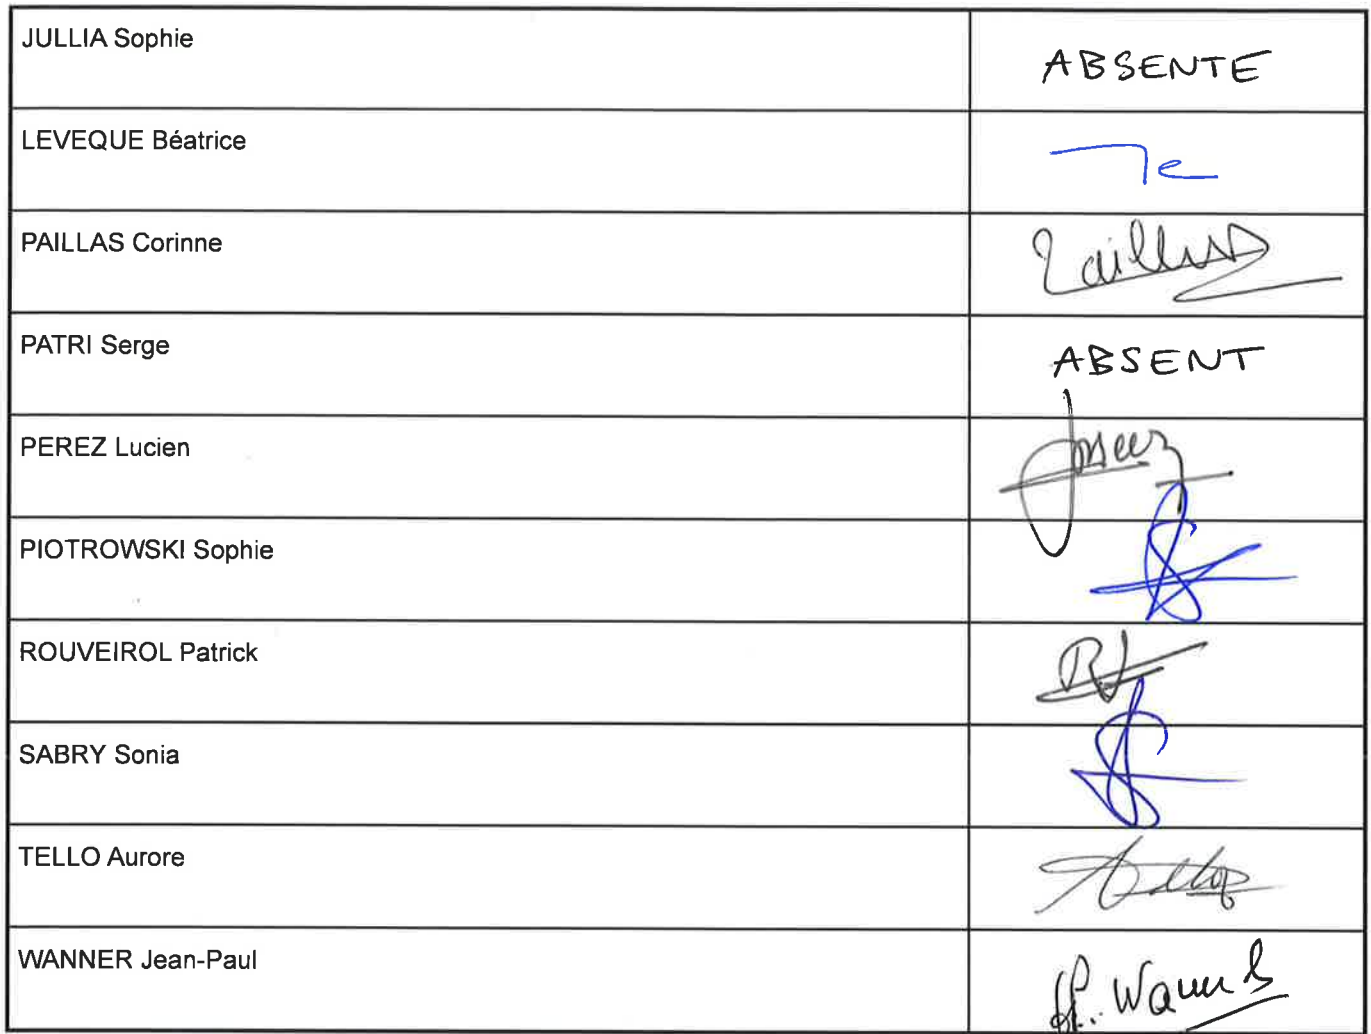 JULLIA Sophie
ABSENTE
LEVEQUE Béatrice
PAILLAS Corinne
Paillas
PATRI Serge
ABSENT
PEREZ Lucien
PIOTROWSKI Sophie
ROUVEIROL Patrick
SABRY Sonia
TELLO Aurore
WANNER Jean-Paul